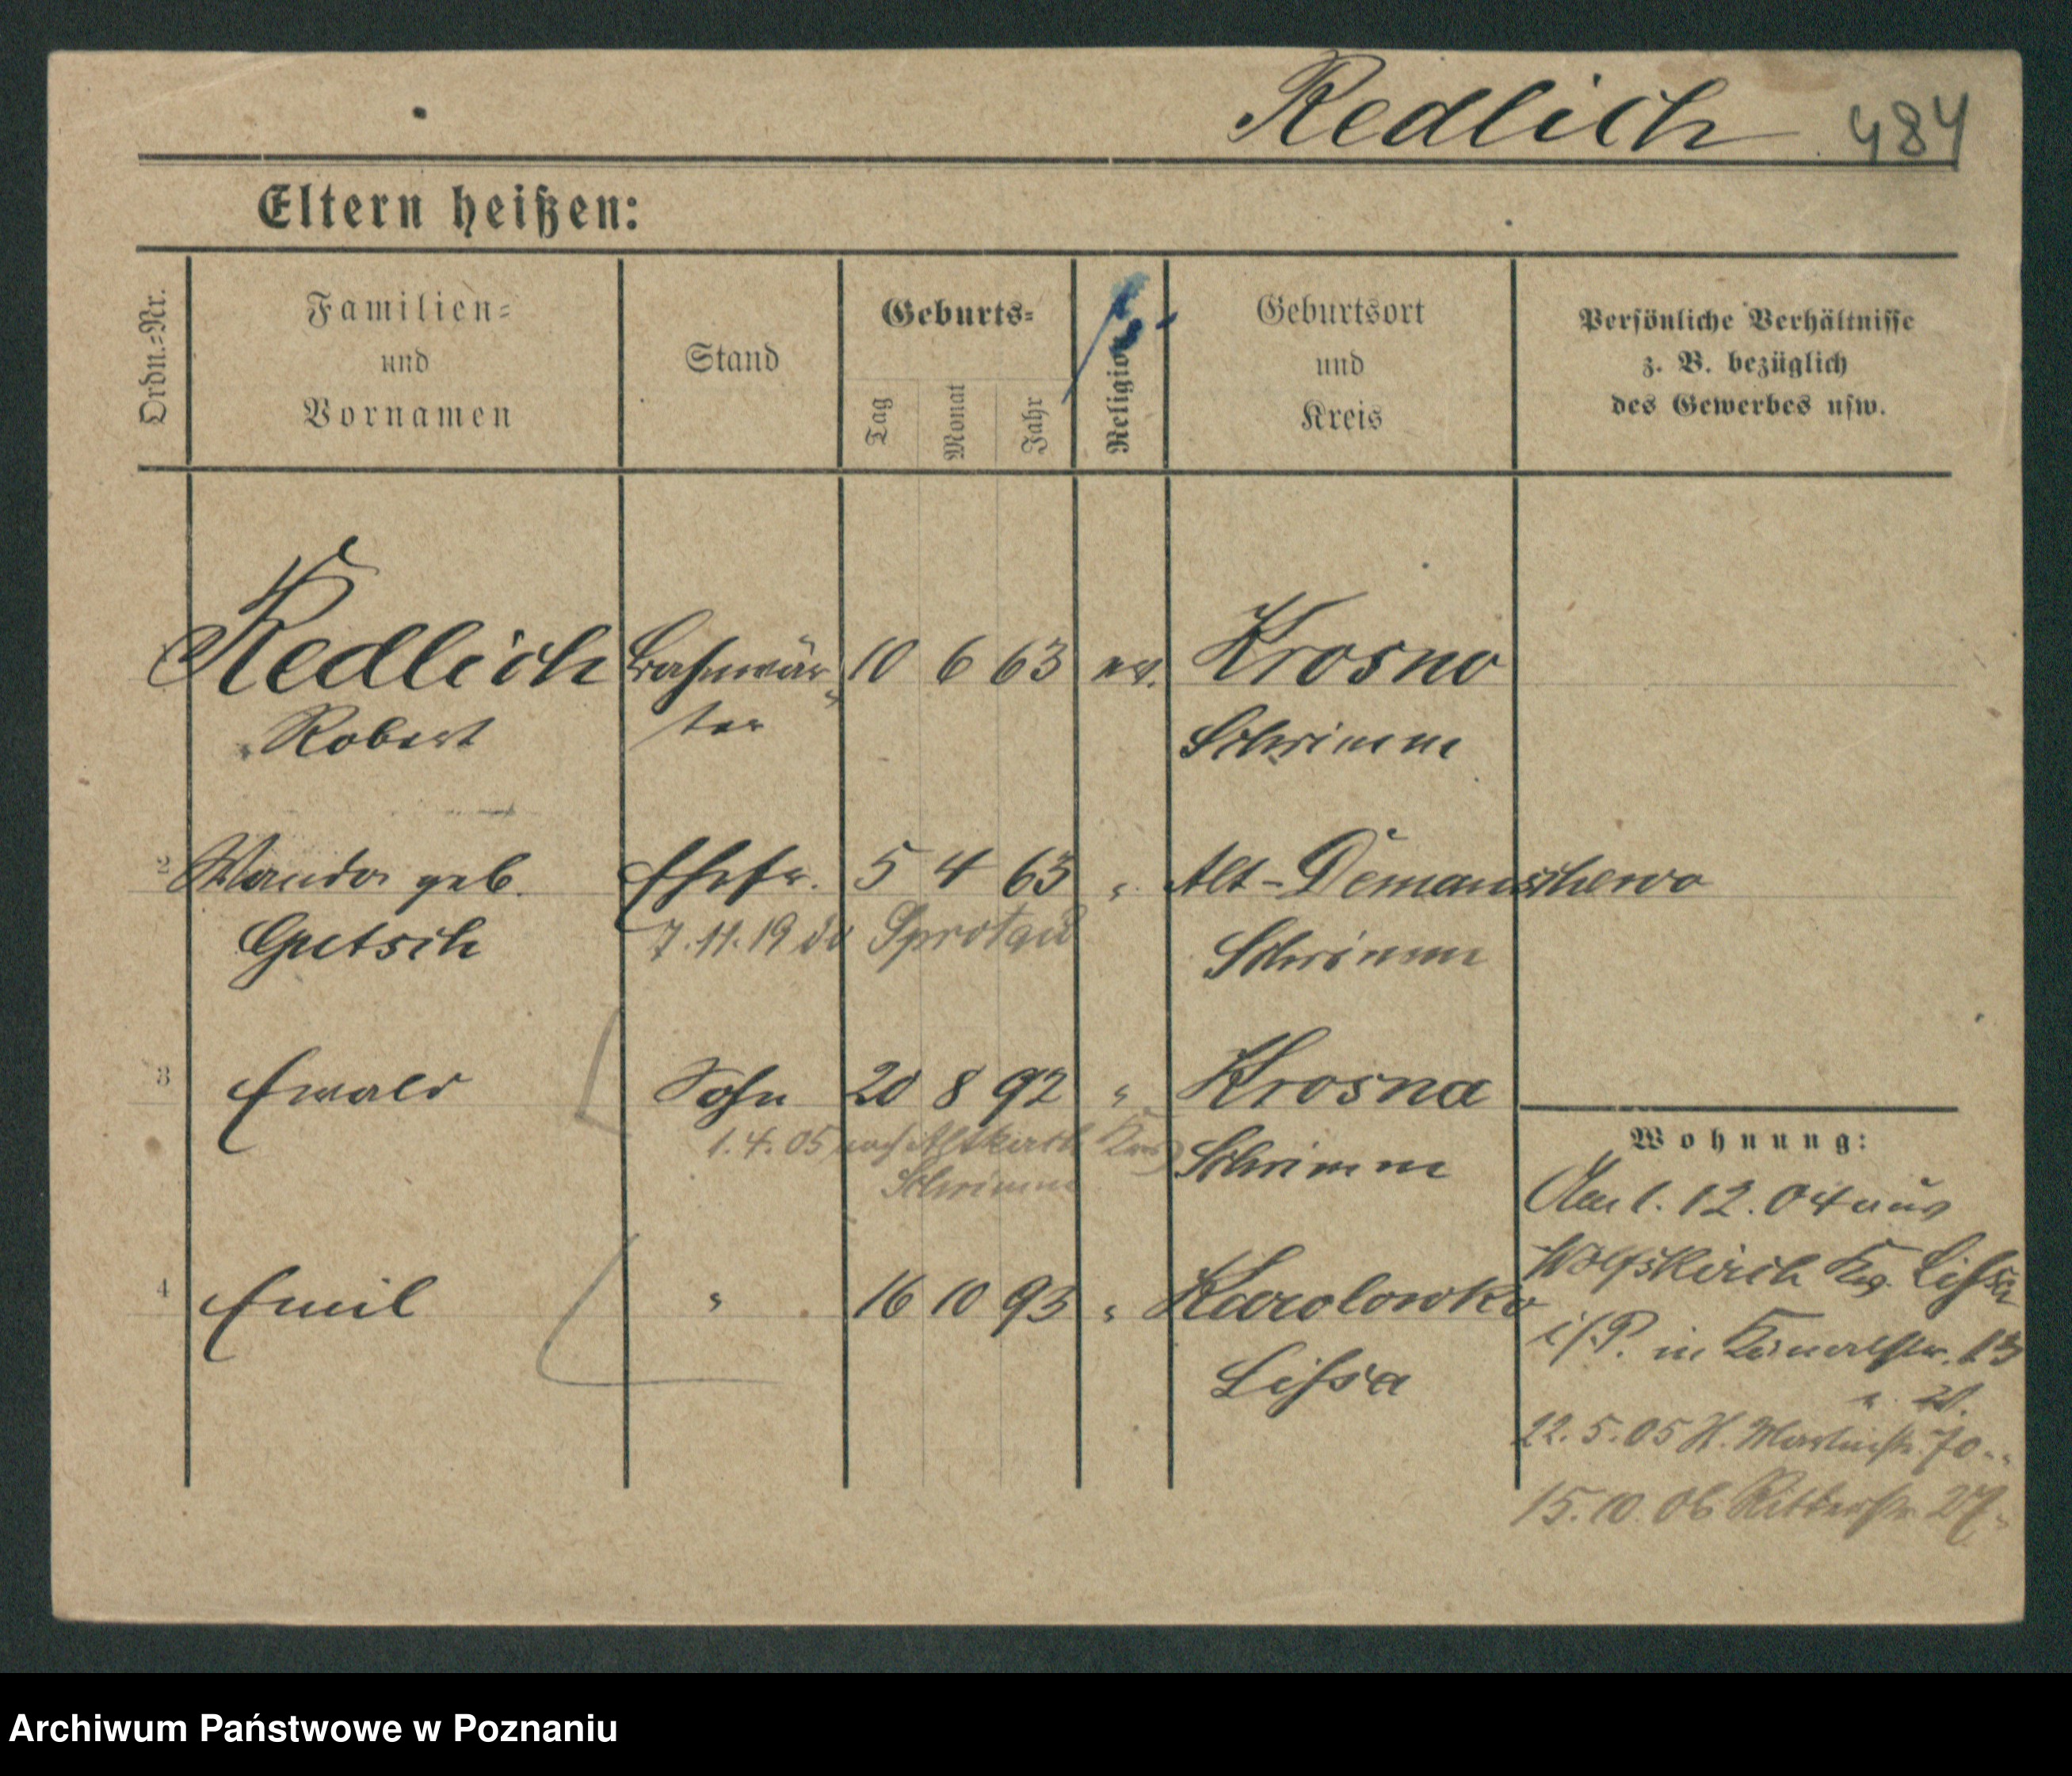 Redlich 484
Eltern heißen:
Ordn.=Nr.
Familien=
und
Vornamen
Stand
Geburts=
Tag
Monat
Jahr
Religion
Geburtsort
und
Kreis
Persönliche Verhältnisse
z. B. bezüglich
des Gewerbes usw.
Redlich Bahnwär- 10 6 63 ev. Krosno
Robert ter Schrimm
2 Wanda geb. Ehefr. 5 4 63 " Alt-Demanschewo
Gutsch 7.11.19 Sprottau Schrimm
3 Ewald Sohn 20 8 92 " Krosna
1.4.05 nach Altkirch Krs
Schrimm Schrimm
4 Emil " 16 10 93 " Karolowko
Lissa
Wohnung:
Am 1.12.04 aus
Wolfskirch Krs. Lissa
i/P. in 13
22.5.05 St. Martinstr. 70
15.10.06 Ritterstr. 27
Archiwum Państwowe w Poznaniu